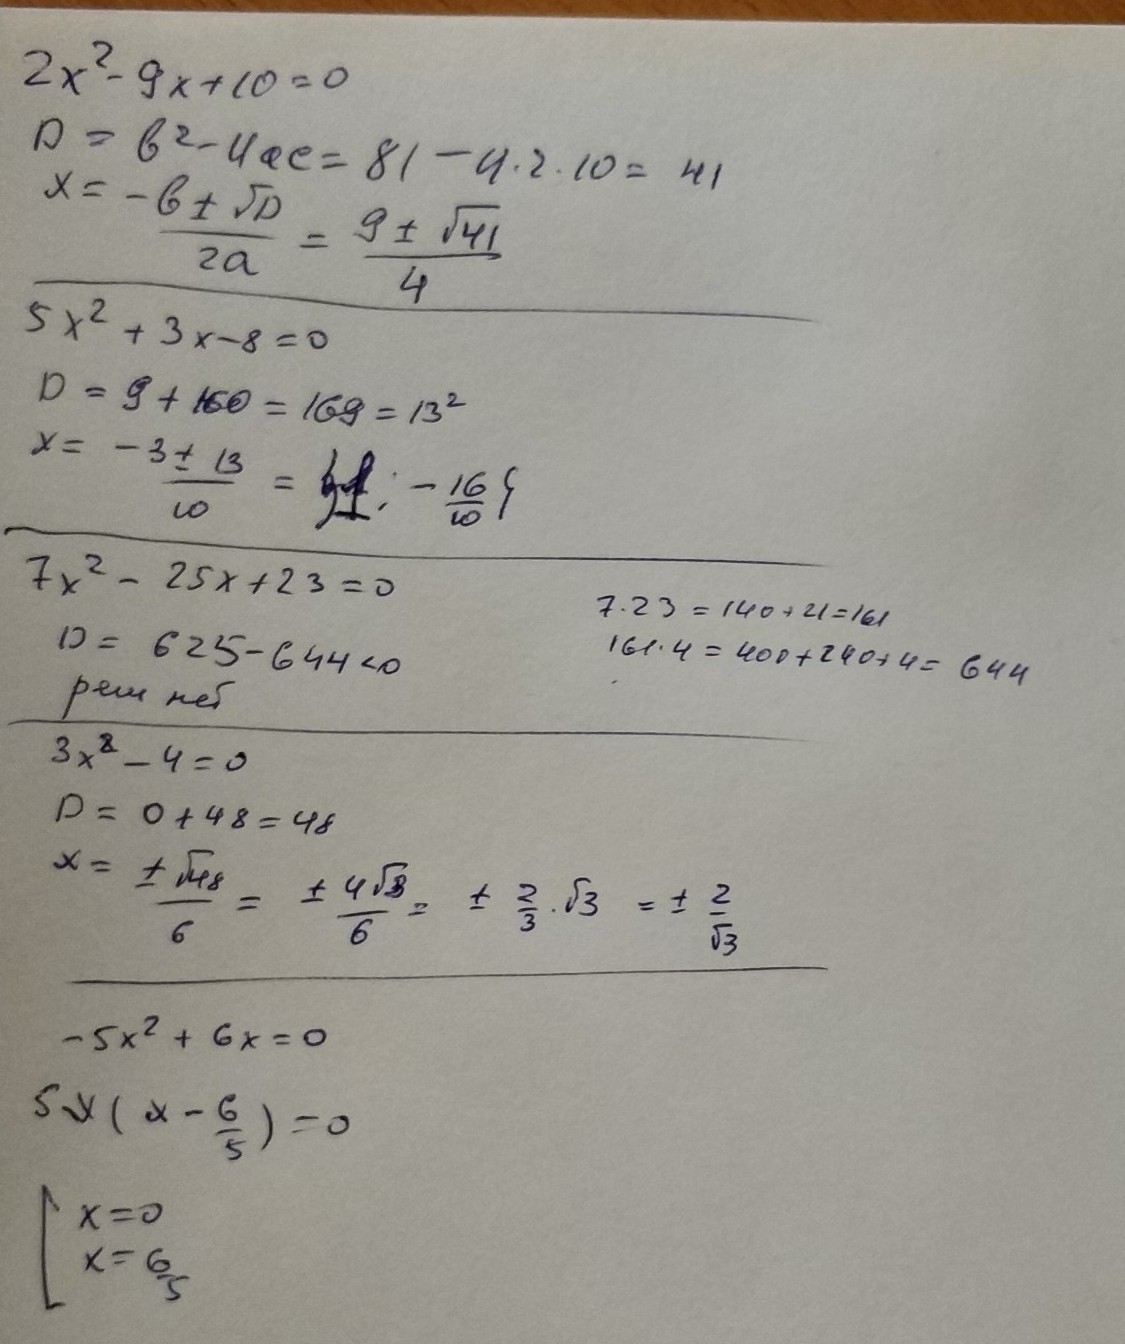 2x² - 9x + 10 = 0
D = b² - 4ac = 81 - 4·2·10 = 41
x = (-b ± √D)/(2a) = (9 ± √41)/4
5x² + 3x - 8 = 0
D = 9 + 160 = 169 = 13²
x = (-3 ± 13)/10 = {1; -16/10}
7x² - 25x + 23 = 0
7·23 = 140 + 21 = 161
D = 625 - 644 < 0
161·4 = 400 + 240 + 4 = 644
реш нет
3x² - 4 = 0
D = 0 + 48 = 48
x = ±√48/6 = ±4√3/6 = ± 2/3 · √3 = ± 2/√3
-5x² + 6x = 0
5x(x - 6/5) = 0
[ x = 0
x = 6/5